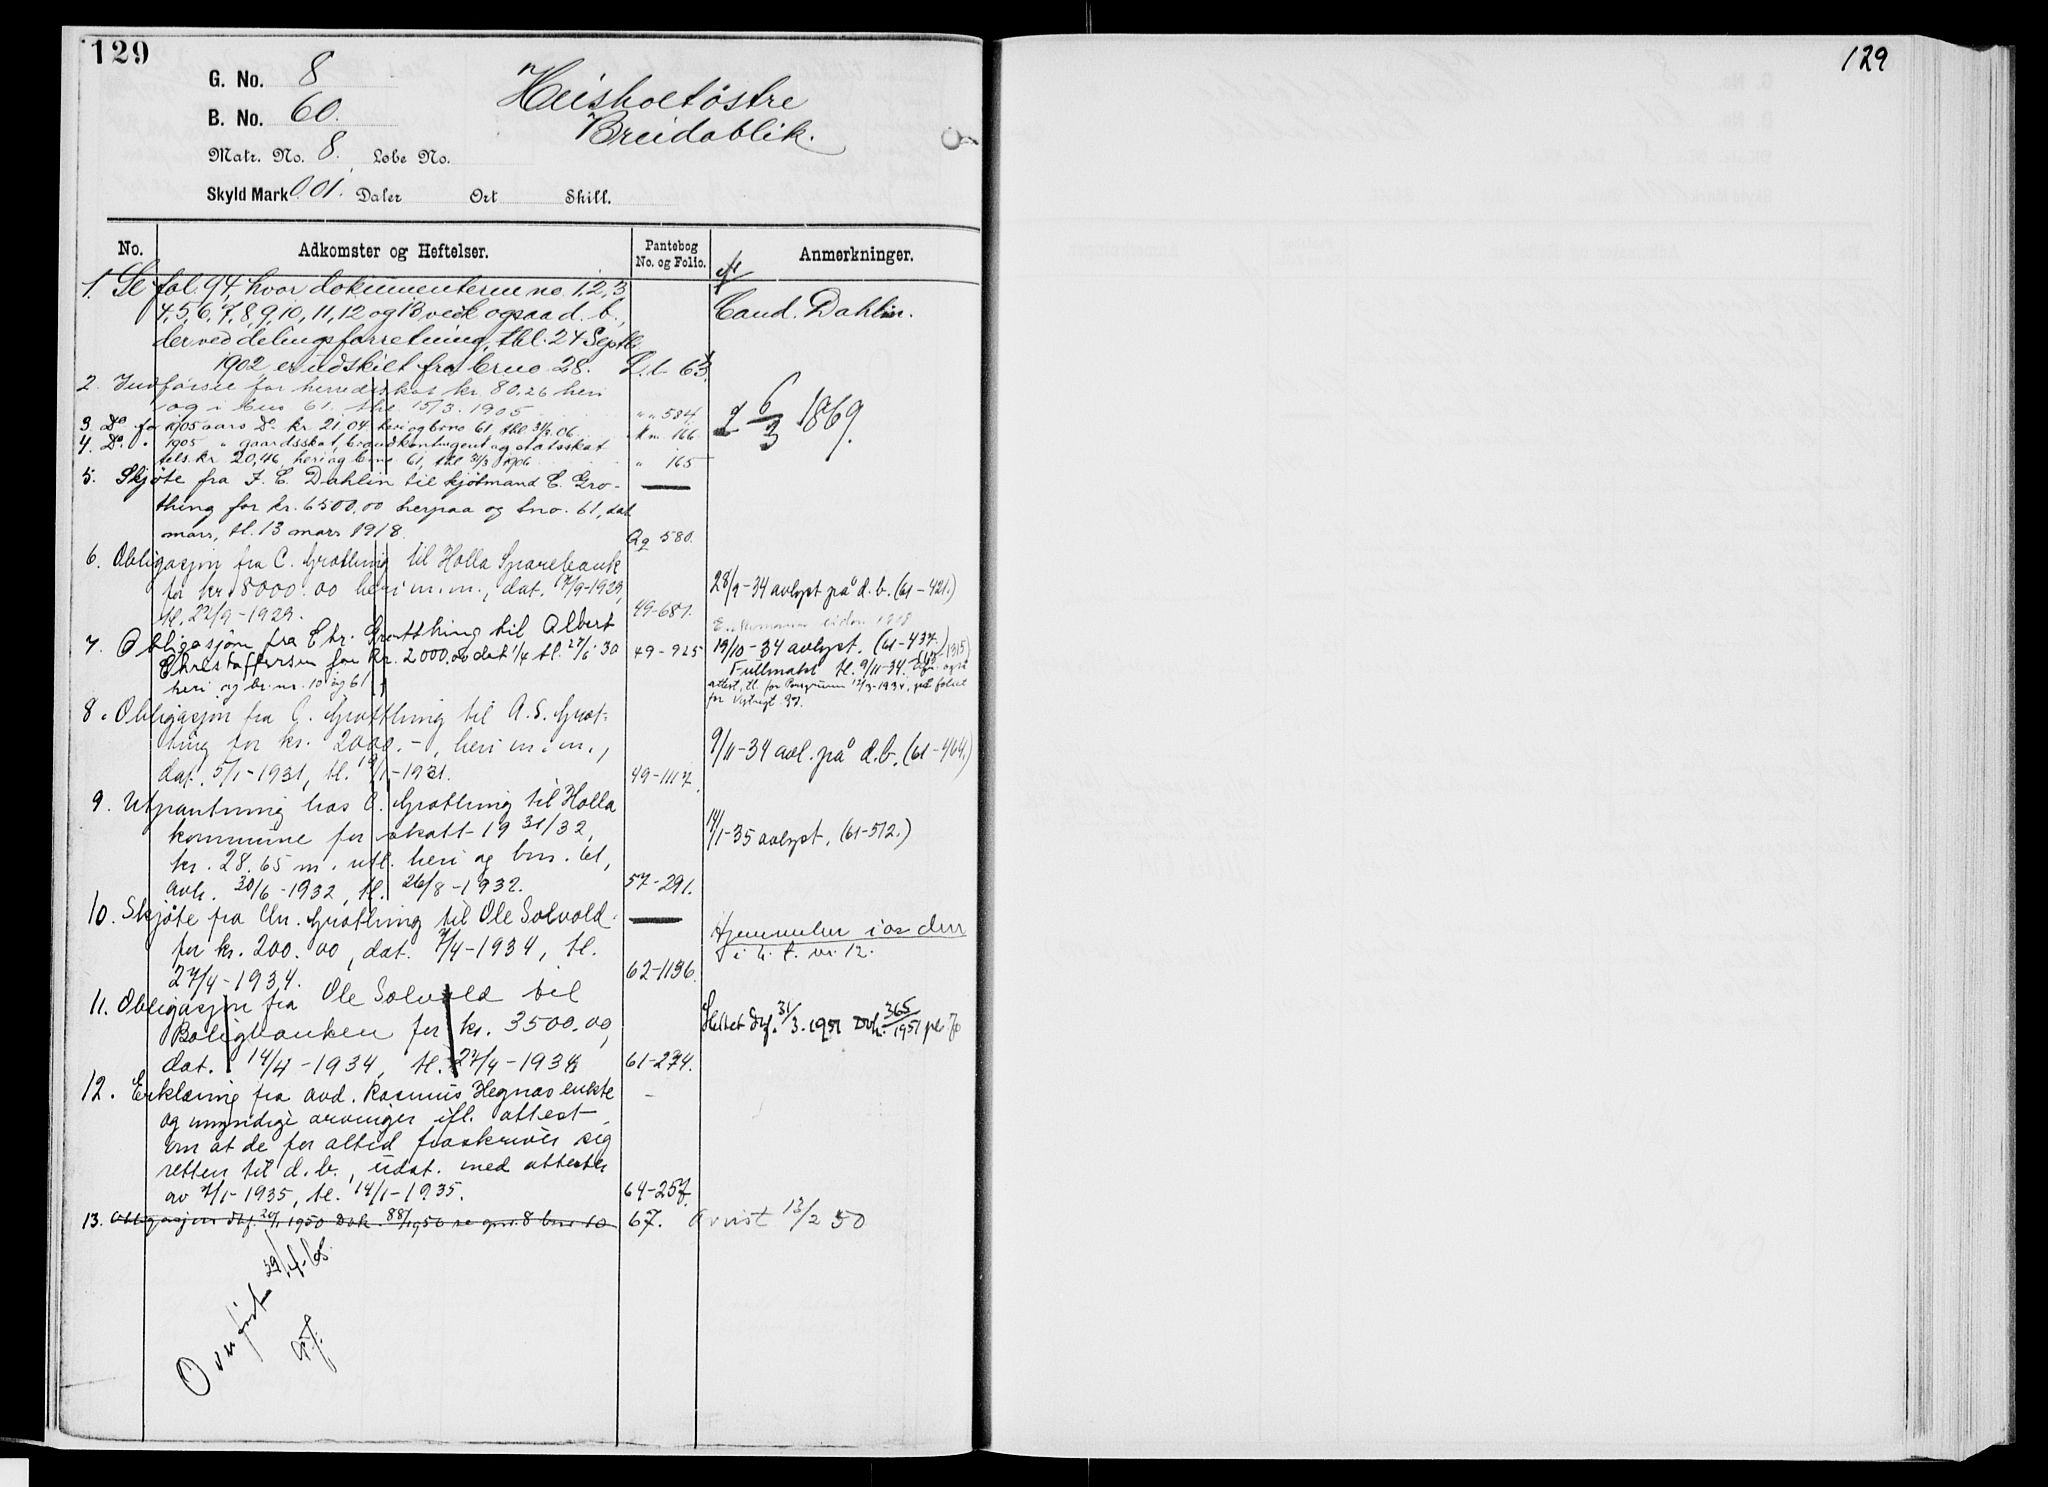 129
G. No. 8
B. No. 60.
Matr. No. 8. Løbe No.
Skyld Mark 0.01. Daler Ort Skill.
Heisholtøstre
Breidablik.
No. Adkomster og Heftelser. Pantebog No. og Folio. Anmerkninger.
1. Se fol. 94, hvor dokumenterne no. 1, 2, 3
4, 5, 6, 7, 8, 9, 10, 11, 12 og 13 vedk ogsaa d. b.,
der ved delingsforretning, thl. 24 Septb.
1902 er udskilt fra brno 28. L.b. 63.
Cand. Dahlin.
2. Indførsel for herredsskat kr. 80,26 heri
og i bno 61. thl. 15/3. 1905 " " 584.
6/3 1869.
3. Do for 1905 aars Do kr 21,04 heri og bno 61 thl. 31/3 06. M m. 166
4. Do. " 1905 " gaardsskat, brandkontingent og statsskat
tils. kr 20,46, heri og bno 61, thl 31/3 1906 " 165
5. Skjøte fra F. E. Dahlin til kjøbmand C. Gro-
thing for kr. 6500,00 herpaa og bno. 61, dat.
mars, tl. 13 mars 1918. Qq 580.
6. Obligasjon fra C. Grotthing til Holla Sparebank
for kr. 8000.00 heri m.m., dat. 17/9-1929,
tl. 27/9-1929. 49-681.
28/9-34 avlyst på d. b. (61-421.)
7. Obligasjon fra Chr. Grotthing til Albert
Christoffersen for kr. 2000,00 dat 1/4 tl. 27/6 30 49-925
heri og br. nr. 10 og 61
19/10-34 avlyst. (61-437.)
Fullmakt tl. 9/11-34.
8. Obligasjon fra C. Grotthing til A. S. Grot-
ting for kr. 2000.-, heri m.m.,
dat. 5/1-1931, tl. 19/1-1931. 49-1117.
9/11-34 avl. på d. b. (61-464.)
9. Utpantning hos C. Grotthing til Holla
kommune for skatt 1931/32,
kr. 28.65 m. utl. heri og bnr. 61,
avh. 30/6-1932, tl. 26/8-1932. 57-291.
14/1-35 avlyst. (61-512.)
10. Skjøte fra Chr. Grotthing til Ole Solvold
for kr. 200.00, dat. 7/4-1934, tl.
27/4-1934. 62-1136.
Hjemmelen i os den
i h. t. nr. 12.
11. Obligasjon fra Ole Solvold til
Boligbanken for kr. 3500.00,
dat. 14/4-1934, tl. 27/4-1934 61-274.
Slettet dbf. 31/3.1951 Dok. 365/1951
12. Erklæring fra avd. Rasmus Hegnas enkte
og umyndige arvinger ifl. attest
om at de for altid fraskriver sig
retten til d. b., udat. med attester
av 7/1-1935, tl. 14/1-1935. 64-257.
13. Obligasjon dbf. 20/1 1950 Dok. 88/1950 se gnr. 8 bnr 10 67. Avvist 13/2 50
Overført 29/4-68
129